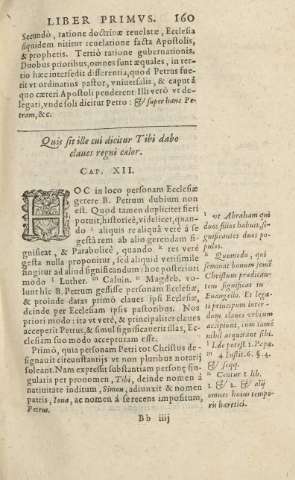 LIBER PRIMVS. 160
Secundò, ratione doctrinæ reuelatæ, Ecclesia
siquidem nititur reuelatione facta Apostolis,
& prophetis. Tertiò ratione gubernationis.
Duobus prioribus, omnes sunt æquales, in ter-
tio hæc intercedit differentia, quod Petrus fue-
rit vt ordinarius pastor, vniuersalis, & caput à
quo cæteri Apostoli penderent Illi verò vt de-
legati, vnde soli dicitur Petro: & super hanc Pe-
tram, &c.
Quis sit ille cui dicitur Tibi dabo
claues regni cælor.
CAP. XII.
HOC in loco personam Ecclesiæ
gerere B. Petrum dubium non
est. Quod tamen dupliciter fieri
potuit, historicè, videlicet, quan-
do aliquis re aliqua verè à se
gesta rem ab alio gerendam si-
gnificat, & Parabolicè, quando res verè
gesta nulla proponitur, sed aliquid verisimile
fingitur ad aliud significandum: hoc posteriori
modo Luther. Caluin. Magdeb. vo-
lunt hic B. Petrum gessisse personam Ecclesiæ,
& proinde datas primò claues ipsi Ecclesiæ,
deinde per Ecclesiam ipsis pastoribus. Nos
priori modo: ita vt verè, & principaliter claues
acceperit Petrus, & simul significauerit illas, Ec-
clesiam suo modo accepturam esse.
Primò, quia personam Petri tot Christus de-
signauit circunstantijs vt non pluribus notarij
soleant. Nam expressit substantiam personę sin-
gularis per pronomen, Tibi, deinde nomen à
natiuitate inditum, Simon, adiunxit & nomen
patris, Iona, ac nomen à se recens impositum,
Petrus.
Bb iiij
vt Abraham qui
duos filios habuit, si-
gnificantes duos po-
pulos.
Quomodo, qui
seminat bonum semē
Christum prædican-
tem significat in
Euangelio. Et lega-
ti principum inter-
dum claues vrbium
accipiunt, cum tamē
nihil acquirant sibi.
l. de potest. l. Papa.
4 Instit. 6. §. 4.
& seqq.
Centur. 1. lib.
1. & 2. & alij
omnes huius tempo-
ris hæretici.